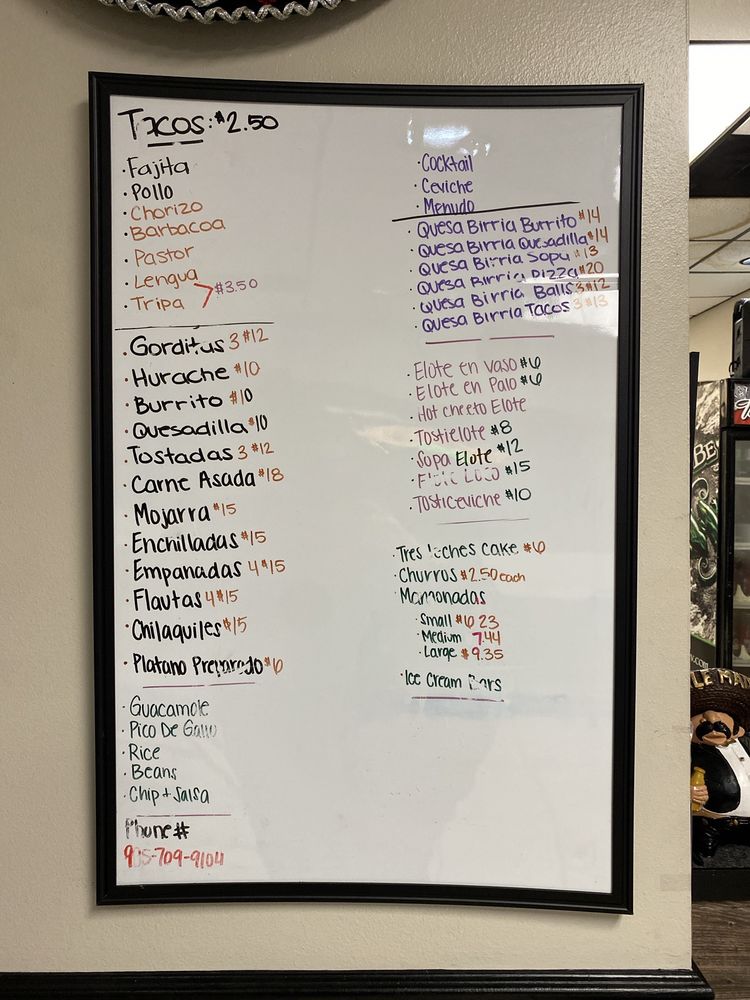 Tacos: $2.50
· Fajita
· Pollo
· Chorizo
· Barbacoa
· Pastor
· Lengua
· Tripa
$3.50
· Gorditas 3 $12
· Hurache $10
· Burrito $10
· Quesadilla $10
· Tostadas 3 $12
· Carne Asada $18
· Mojarra $15
· Enchilladas $15
· Empanadas 4 $15
· Flautas 4 $15
· Chilaquiles $15
· Platano Preparado $6
· Guacamole
· Pico De Gallo
· Rice
· Beans
· Chip + Salsa
Phone #
-709-9104
· Cocktail
· Ceviche
· Menudo
· Quesa Birria Burrito $14
· Quesa Birria Quesadilla $14
· Quesa Birria Sopa $13
· Quesa Birria Pizza $20
· Quesa Birria Balls 3 $12
· Quesa Birria Tacos 3 $13
· Elote en vaso $6
· Elote en Palo $6
· Hot cheeto Elote
· Tostielote $8
· Sopa Elote $12
· Elote Loco $15
· Tosticeviche $10
· Tres leches cake $6
· Churros $2.50 each
· Mangonadas
· Small $6.23
· Medium 7.44
· Large $9.35
· Ice Cream Bars